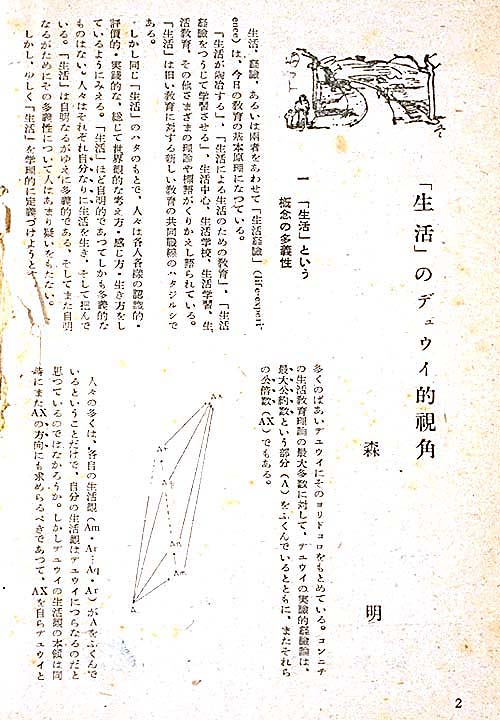 「生活」のデュウイ的視角
森　明
一　「生活」という
概念の多義性
生活、経驗、あるいは兩者をあわせて「生活経驗」(life-experi-
ence)は、今日の教育の基本原理になつている。
「生活が陶冶する」、「生活による生活のための教育」、「生活
経驗をつうじて学習させる」、生活中心、生活学校、生活学習、生
活教育、その他さまざまの理論や標語がくりかえし語られている。
「生活」は旧い教育に対する新しい教育の共同戰線のハタジルシで
ある。
しかし同じ「生活」のハタのもとで、人々は各人各様の認識的・
評價的・実践的な、総じて世界観的な考え方・感じ方・生き方をし
ているようにみえる。「生活」ほど自明的であつてしかも多義的な
ものはない。人々はそれぞれ自分なりに生活を生き、そして掴んで
いる。「生活」は自明なるがゆえに多義的である、そしてまた自明
なるがためにその多義性について人はあまり疑いをもたない。
しかし、ひとしく「生活」を学理的に定義づけようとす
多くのばあいデュウイにそのヨリドコロをもとめている。コンニチ
の生活教育理論の最大多数に対して、デュウイの実驗的経驗論は、
最大公約数という部分（A）をふくんでいるとともに、またそれら
の公倍数（AX）でもある。
人々の多くは、各自の生活観（Am・Ar…Aq・Ar）がAをふくんで
いるということだけで、自分の生活観はデュウイにつらなるのだと
思つているのではなかろうか。しかしデュウイの生活観の本領は同
時にまたAXの方向にも求めらるべきであつて、AXを自らデュウイと
Ax
Ar
An
Am
A
2